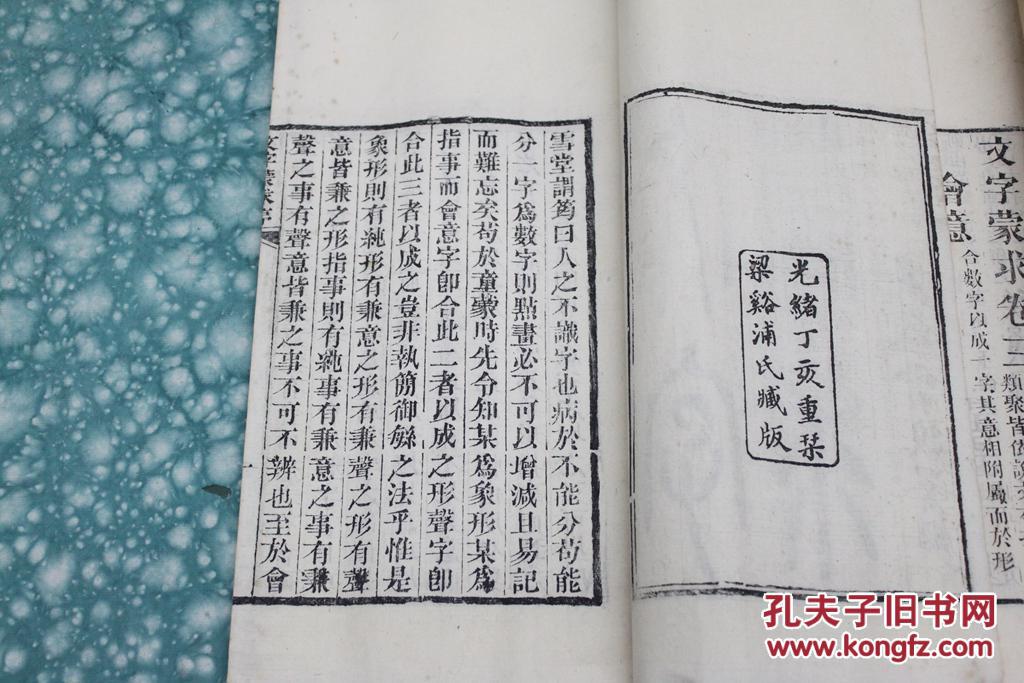 文字蒙求卷三
會意
合數字以成一字其意相附屬而於形
類聚皆依
光緒丁亥重栞
梁谿浦氏臧版
雪堂謂筠曰人之不識字也病於不能分苟能
分一字爲數字則點畫必不可以增減且易記
而難忘矣苟於童蒙時先令知某爲象形某爲
指事而會意字卽合此二者以成之形聲字卽
合此三者以成之豈非執簡御緐之法乎惟是
象形則有純形有兼意之形有兼聲之形有聲
意皆兼之形指事則有純事有兼意之事有兼
聲之事有聲意皆兼之事不可不辨也至於會
文字蒙求序
孔夫子旧书网
www.kongfz.com